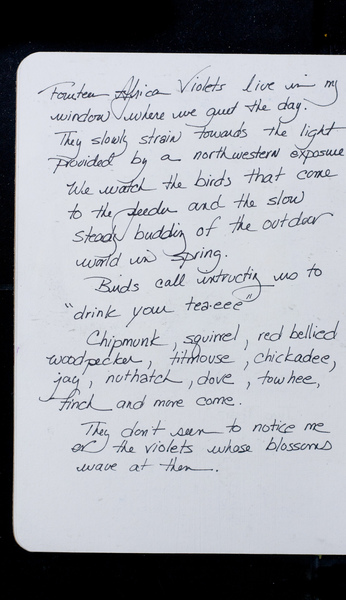 Fourteen Africa Violets live in my
window where we greet the day.
They slowly strain towards the light
provided by a northwestern exposure
We watch the birds that come
to the feeder and the slow
steady budding of the outdoor
world in spring.
Birds call instructing us to
"drink your tea-eee"
Chipmunk, squirrel, red bellied
woodpecker, titmouse, chickadee,
jay, nuthatch, dove, towhee,
finch and more come.
They don't seem to notice me
or the violets whose blossoms
wave at them.